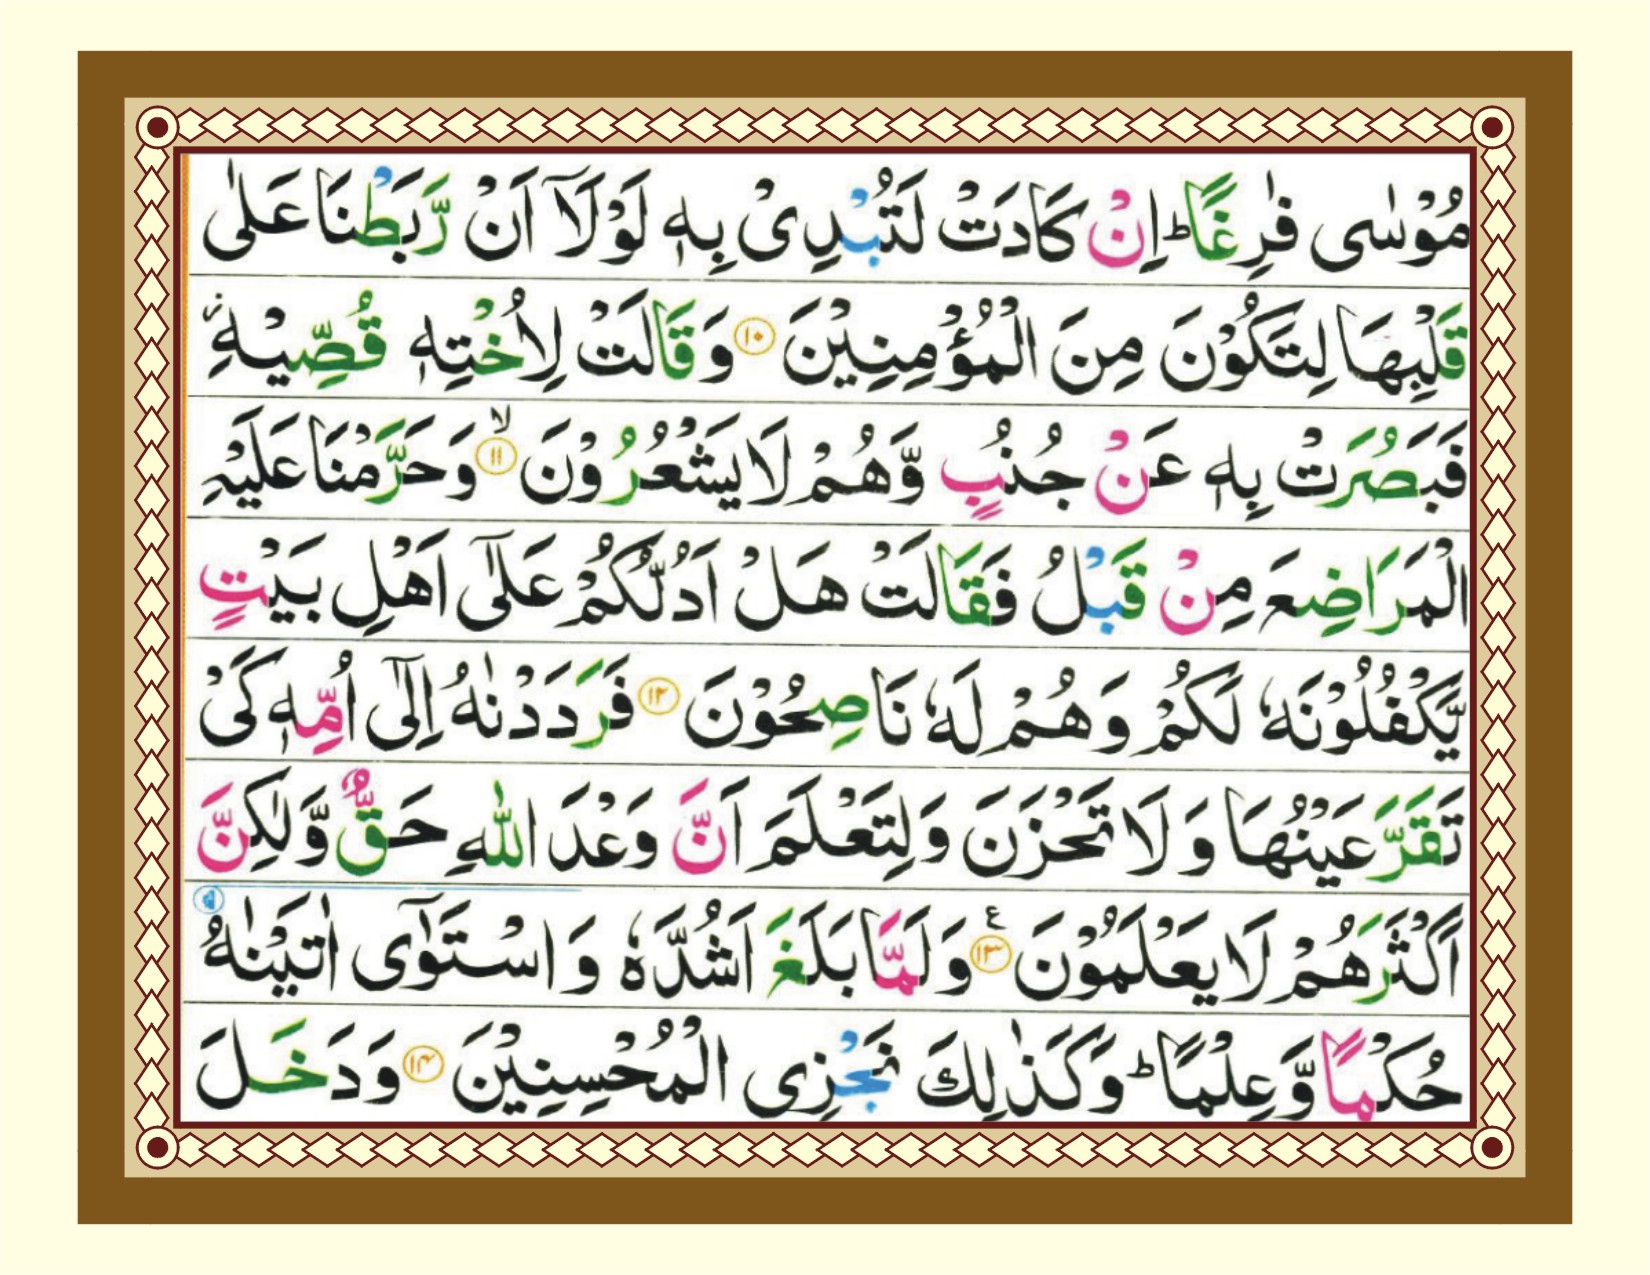 مُوْسٰى فٰرِغًا ؕ اِنْ كَادَتْ لَتُبْدِىْ بِهٖ لَوْلَاۤ اَنْ رَّبَطْنَا عَلٰى
قَلْبِهَا لِتَكُوْنَ مِنَ الْمُؤْمِنِيْنَ ۝۱۰ وَقَالَتْ لِاُخْتِهٖ قُصِّيْهِ ؗ
فَبَصُرَتْ بِهٖ عَنْ جُنُبٍ وَّهُمْ لَا يَشْعُرُوْنَ ۝۱۱ۙ وَحَرَّمْنَا عَلَيْهِ
الْمَرَاضِعَ مِنْ قَبْلُ فَقَالَتْ هَلْ اَدُلُّكُمْ عَلٰٓى اَهْلِ بَيْتٍ
يَّكْفُلُوْنَهٗ لَكُمْ وَهُمْ لَهٗ نَاصِحُوْنَ ۝۱۲ فَرَدَدْنٰهُ اِلٰٓى اُمِّهٖ كَىْ
تَقَرَّ عَيْنُهَا وَ لَا تَحْزَنَ وَلِتَعْلَمَ اَنَّ وَعْدَ اللّٰهِ حَقٌّ وَّلٰكِنَّ
اَكْثَرَهُمْ لَا يَعْلَمُوْنَ ۝۱۳ ع وَلَمَّا بَلَغَ اَشُدَّهٗ وَ اسْتَوٰٓى اٰتَيْنٰهُ
حُكْمًا وَّعِلْمًا ؕ وَكَذٰلِكَ نَجْزِى الْمُحْسِنِيْنَ ۝۱۴ وَدَخَلَ